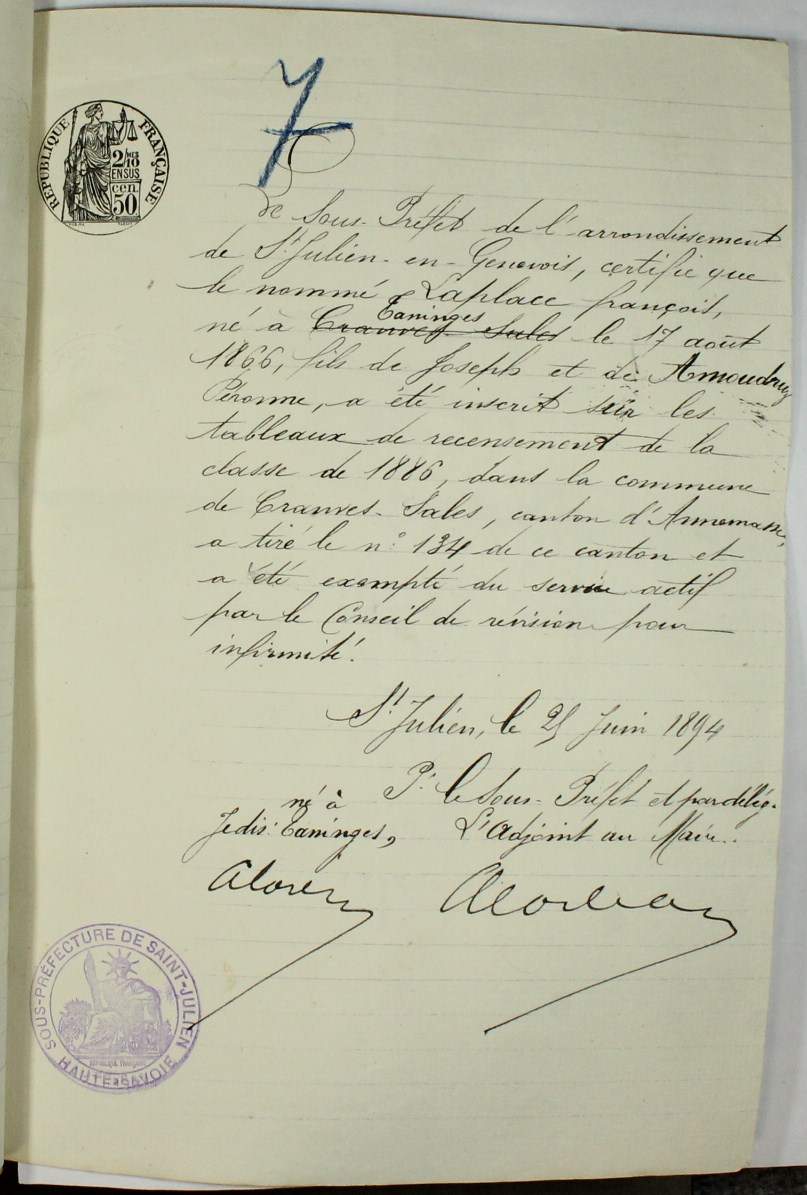 7
RÉPUBLIQUE FRANÇAISE
2/10
EN SUS
cen.
50
Le Sous-Préfet de l'arrondissement
de St Julien-en-Genevois, certifie que
le nommé Laplace françois,
Taninges
né à Cranves-Sales le 17 août
1866, fils de Joseph et de Amoudruz
Péronne, a été inscrit sur les
tableaux de recensement de la
classe de 1886, dans la commune
de Cranves-Sales, canton d'Annemasse,
a tiré le n° 134 de ce canton et
a été exempté du service actif
par le Conseil de révision pour
infirmité.
St Julien, le 25 Juin 1894
Pr le Sous-Préfet et par délég.
L'Adjoint au Maire.
né à
Je dis: Taninges,
SOUS-PRÉFECTURE DE SAINT-JULIEN
HAUTE-SAVOIE